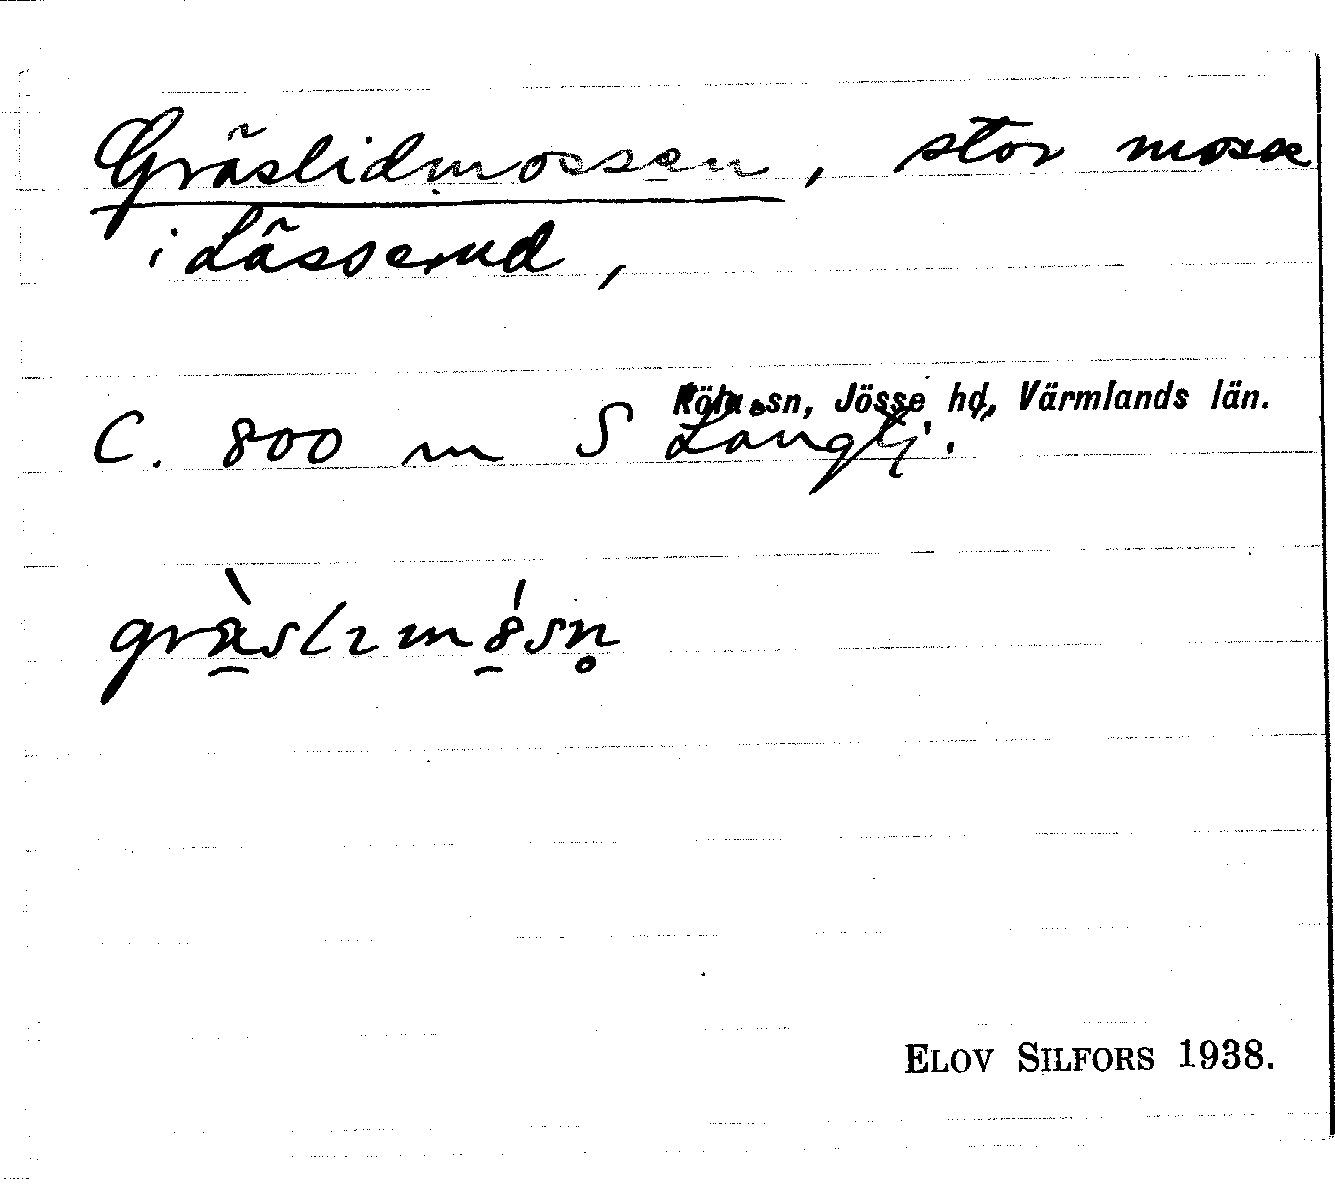 Gräslidmossen, stor mosse
i Lässerud,
Köla sn, Jösse hd, Värmlands län.
C. 800 m S Långtj.
ELOV SILFORS 1938.